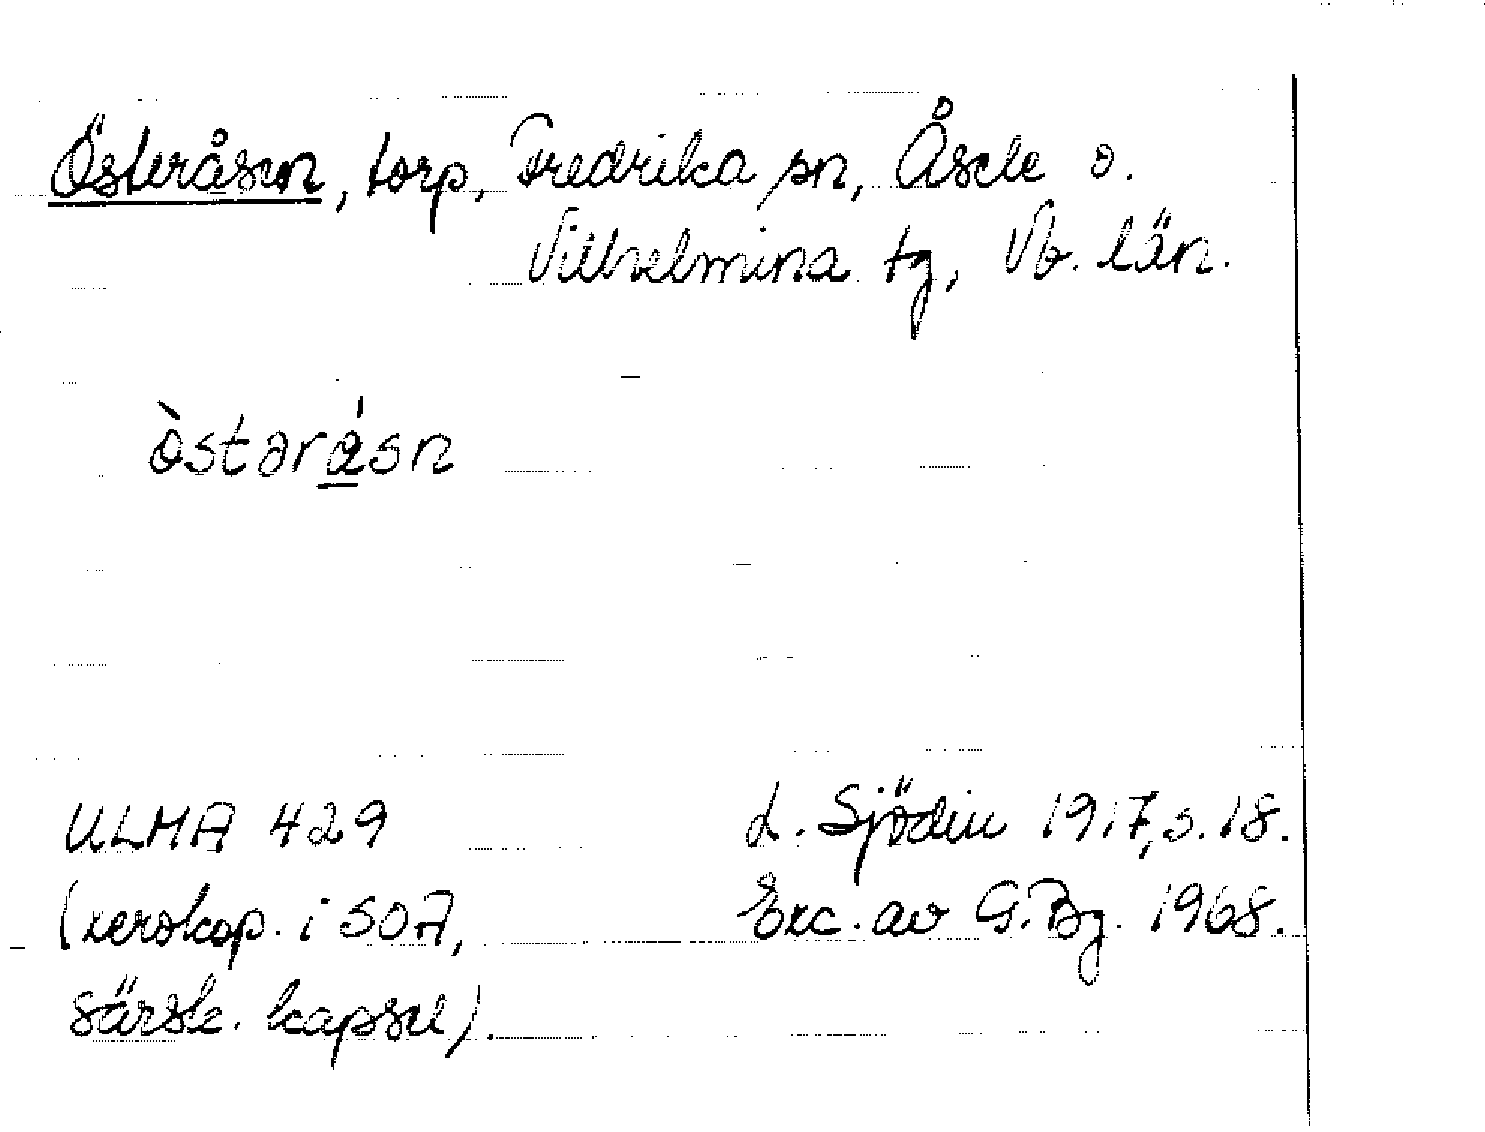 Österåsen, torp, Fredrika sn, Åsele o.
Vilhelmina tg, Vb. län.
òstərásn
ULMA 429
(xerokop. i SOA,
särsk. kapsel).
L. Sjödin 1917, s. 18.
Exc. av G. Bg. 1968.